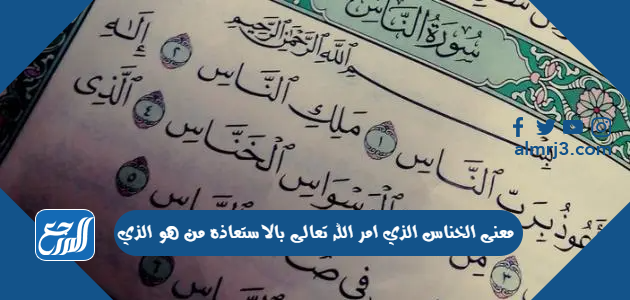 سُورَةُ النَّاسِ
بِسْمِ ٱللَّهِ ٱلرَّحْمَٰنِ ٱلرَّحِيمِ
أَعُوذُ بِرَبِّ ٱلنَّاسِ ١ مَلِكِ ٱلنَّاسِ ٢ إِلَٰهِ
٣ مِن ٱلْوَسْوَاسِ ٱلْخَنَّاسِ ٤ ٱلَّذِى
فِى ٱلنَّاسِ ٥
ٱلنَّاسِ ٦
almrj3.com
معنى الخناس الذي امر الله تعالى بالاستعاذه من هو الذي
المرجع